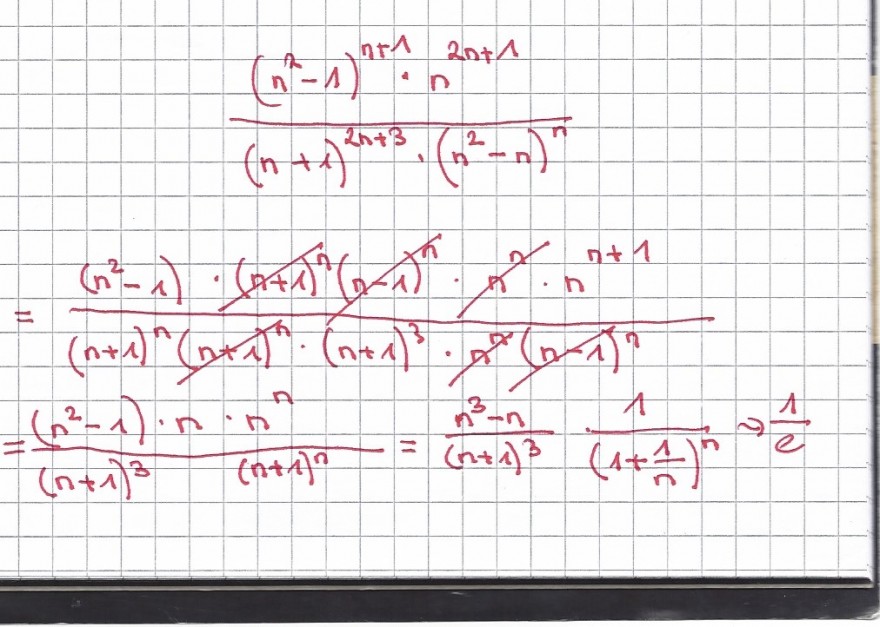 (n²-1)ⁿ⁺¹ · n²ⁿ⁺¹
(n+1)²ⁿ⁺³ · (n²-n)ⁿ
(n²-1) · (n+1)ⁿ (n-1)ⁿ · nⁿ · nⁿ⁺¹
=
(n+1)ⁿ (n+1)ⁿ · (n+1)³ · nⁿ (n-1)ⁿ
= (n²-1) · n · nⁿ / (n+1)³ (n+1)ⁿ = n³-n / (n+1)³ · 1 / (1+1/n)ⁿ → 1/e